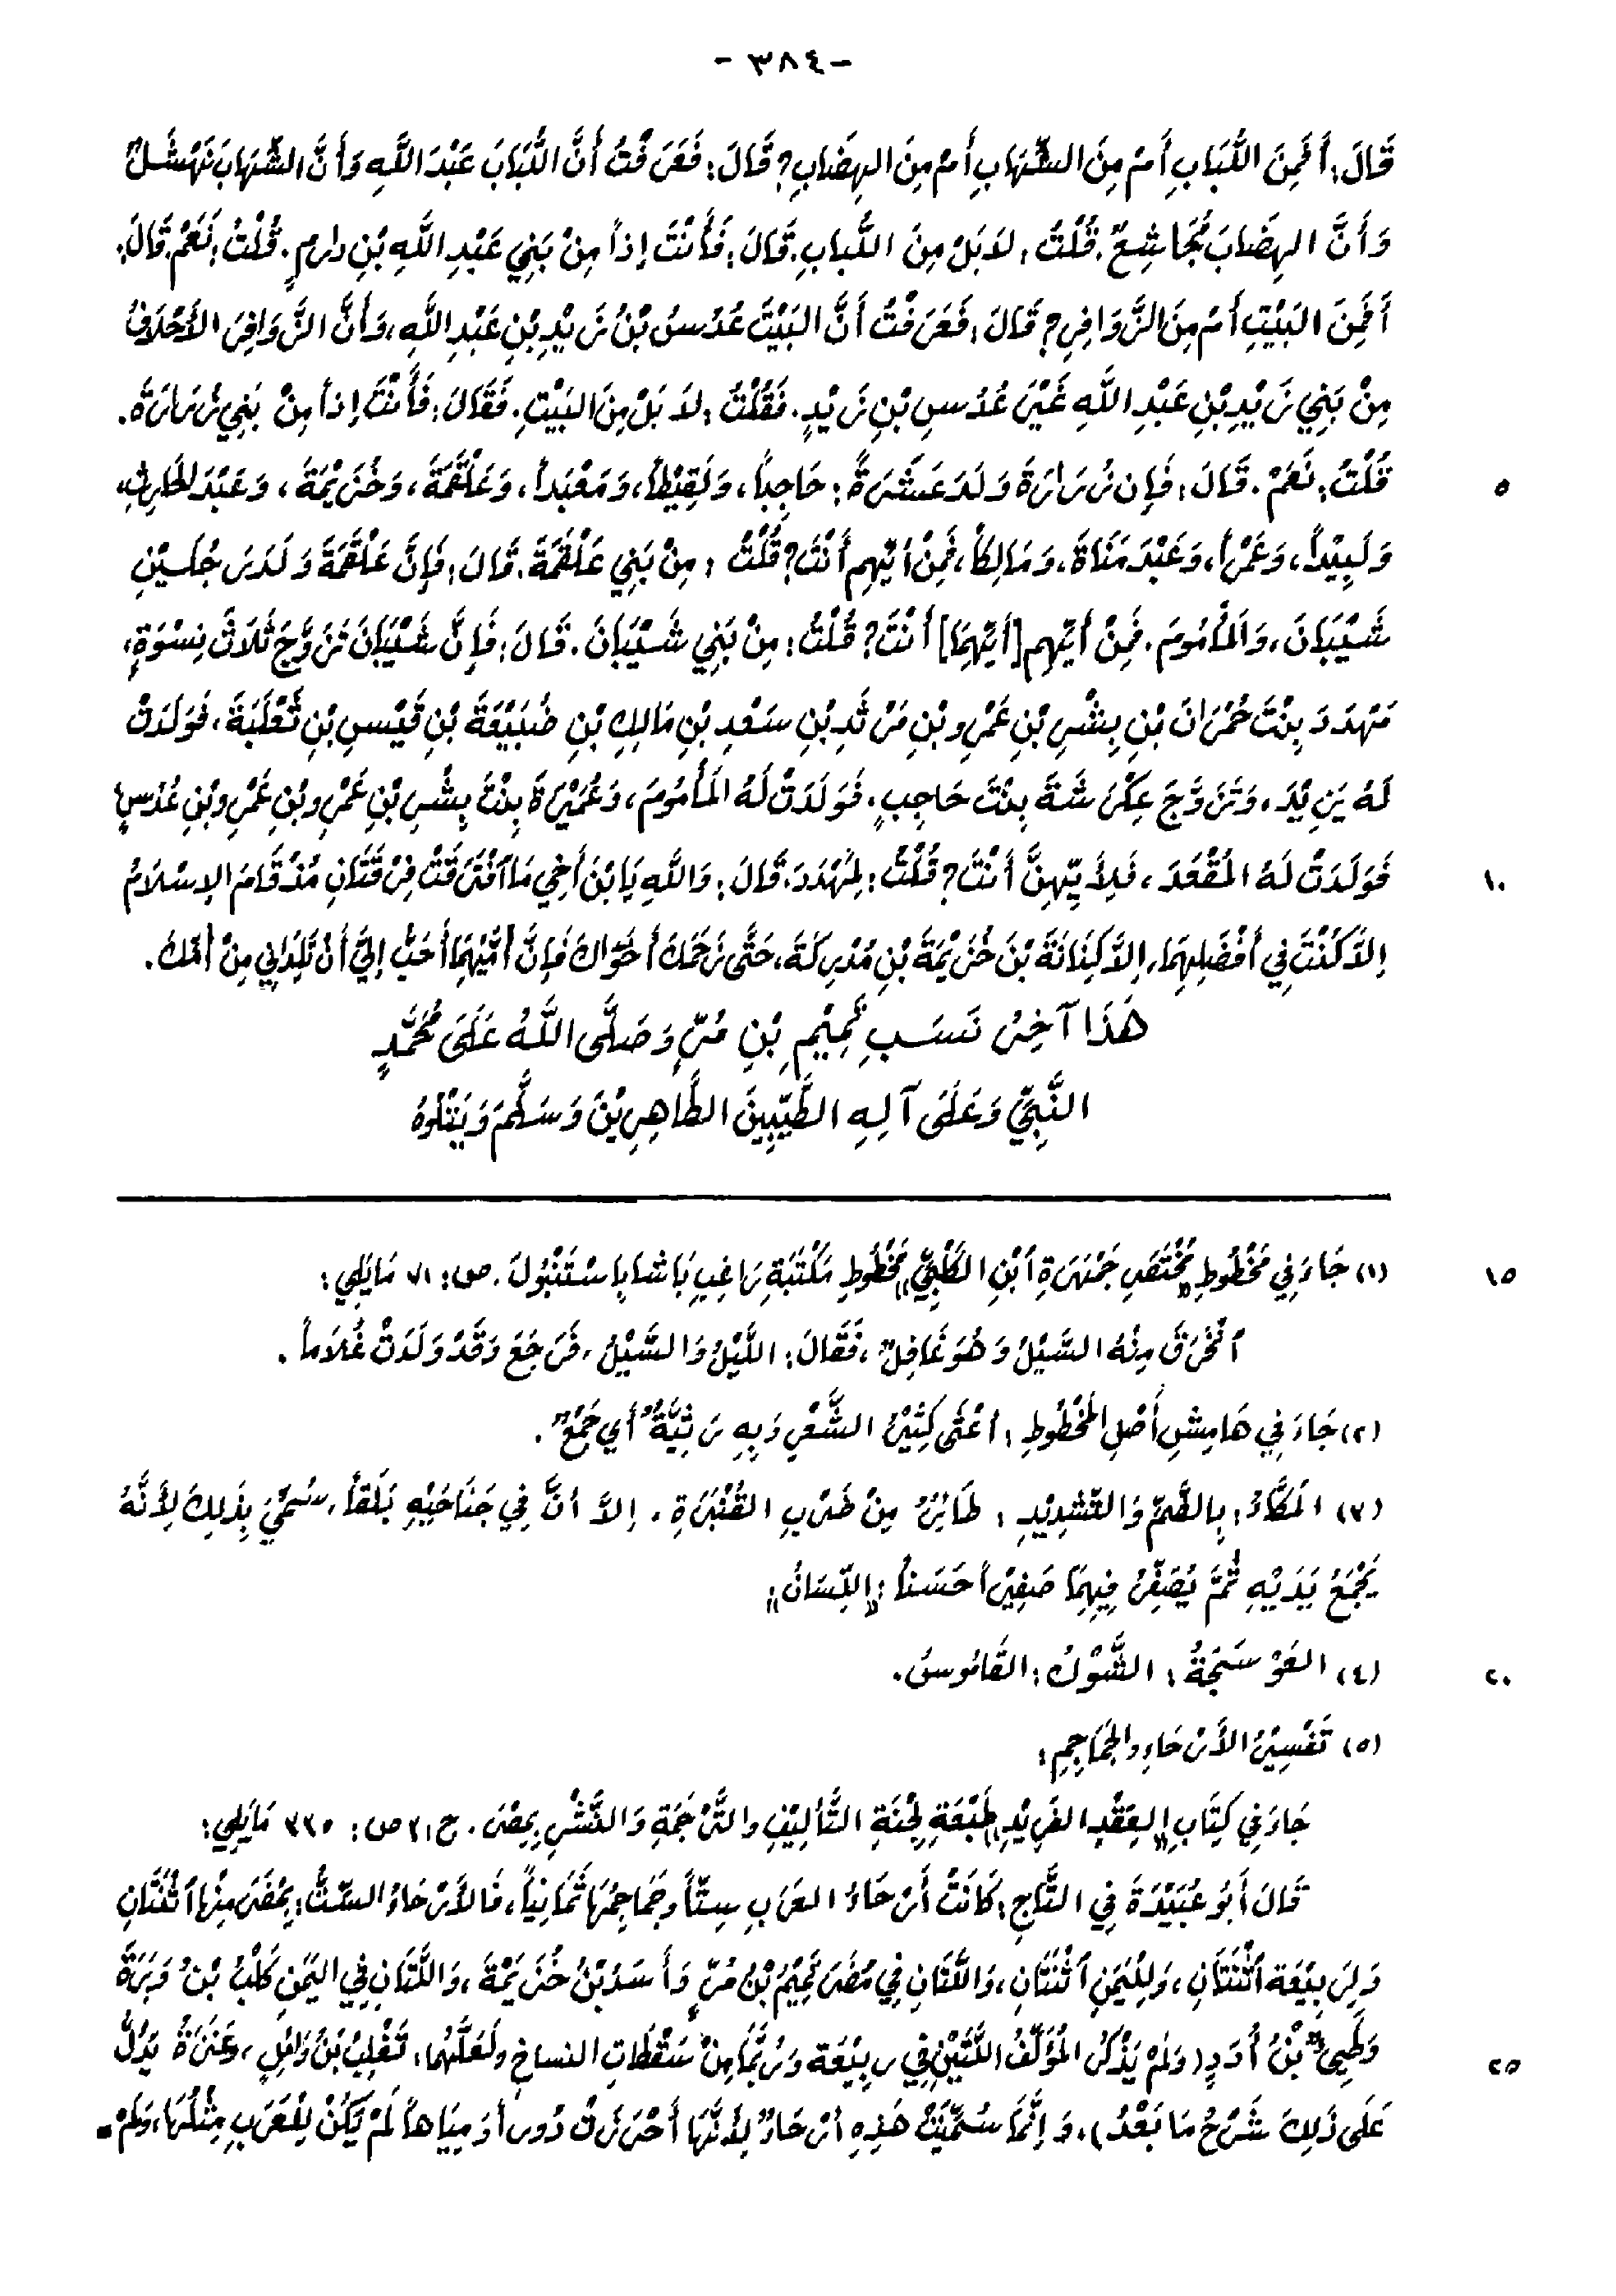 - ٣٨٤ -
قَالَ: أَفَمِنَ اللُّبَابِ أَمْ مِنَ الشِّهَابِ أَمْ مِنَ الهِضَابِ؟ قَالَ: فَعَرَفْتُ أَنَّ اللُّبَابَ عَبْدَ اللَّهِ وَأَنَّ الشِّهَابَ نَهْشَلٌ
وَأَنَّ الهِضَابَ مُجَاشِعٌ. قُلْتُ: لاَ بَلْ مِنَ اللُّبابِ. قَالَ: فَأَنْتَ إذاً مِنْ بَنِي عَبْدِ اللَّهِ بْنِ دارِمٍ. قُلْتُ: نَعَمْ. قَالَ:
أَفَمِنَ البَيْتِ أَمْ مِنَ الزَّوَافِرِ؟ قَالَ: فَعَرَفْتُ أَنَّ البَيْتَ عُدُسُ بْنُ زَيْدِ بْنِ عَبْدِ اللَّهِ، وَأَنَّ الزَّوَافِرَ الأَحْلاَفُ
مِنْ بَنِي زَيْدِ بْنِ عَبْدِ اللَّهِ غَيْرَ عُدُسِ بْنِ زَيْدٍ. فَقُلْتُ: لاَ بَلْ مِنَ البَيْتِ. فَقَالَ: فَأَنْتَ إذاً مِنْ بَنِي زُرَارَةَ.
قُلْتُ: نَعَمْ. قَالَ: فَإِن زُرَارَةَ وَلَدَ عَشَرَةً: حَاجِباً، وَلَقِيْطاً، وَمَعْبَداً، وَعَلْقَمَةَ، وَخُزَيْمَةَ، وَعَبْدَ الحَارِثِ،
٥
وَلَبِيْداً، وَعَمْراً، وَعَبْدَ مَنَاةَ، وَمَالِكاً، فَمِنْ أيِّهِم أَنْتَ؟ قُلْتُ: مِنْ بَنِي عَلْقَمَةَ. قَالَ: فَإِنَّ عَلْقَمَةَ وَلَدَ رَجُلَيْنِ
شَيْبَانَ، وَالمَأْمُومَ. فَمِنْ أيِّهِم [أيِّهِمَا] أَنْتَ؟ قُلْتُ: مِنْ بَنِي شَيْبَانَ. قَالَ: فَإِنَّ شَيْبَانَ تَزَوَّجَ ثَلاَثَ نِسْوَةٍ،
مَهْدَدَ بِنْتَ حُمْرَانَ بْنِ بِشْرِ بْنِ عَمْرِو بْنِ مَرْثَدِ بْنِ سَعْدِ بْنِ مَالِكِ بْنِ ضُبَيْعَةَ بْنِ قَيْسِ بْنِ ثَعْلَبَةَ، فَوَلَدَتْ
لَهُ يَزِيْدَ، وَتَزَوَّجَ عِكْرِشَةَ بِنْتَ حَاجِبٍ، فَوَلَدَتْ لَهُ المَأْمُومَ، وَعُمَيْرَةَ بِنْتَ بِشْرِ بْنِ عَمْرِو بْنِ عَمْرِو بْنِ عُدُسٍ
فَوَلَدَتْ لَهُ المُقْعَدَ، فَلأَيِّهِنَّ أَنْتَ؟ قُلْتُ: لِمَهْدَدَ. قَالَ: وَاللَّهِ يَا بْنَ أَخِي مَا آفْتَرَقَتْ فِرْقَتَانِ مُذْ قَامَ الإسْلاَمُ
١٠
إلاَّ كُنْتَ فِي أَفْضَلِهِمَا، إلاَّ كِنَانَةَ بْنَ خُزَيْمَةَ بْنِ مُدْرِكَةَ، حَتَّى زَحَمَكَ أَخَوَاكَ فَإِنَّ أُمَّيْهِمَا أَحَبُّ إلَيَّ أَنْ تَلِدَانِي مِنْ أُمِّكَ.
هَذَا آخِرُ نَسَبِ تَمِيْمِ بْنِ مُرٍّ وَصَلَّى اللَّهُ عَلَى مُحَمَّدٍ
النَّبِيِّ وَعَلَى آلِهِ الطَّيِّبِينَ الطَّاهِرِيْنَ وَسَلَّمَ وَيَتْلُوهُ
(١) جَاءَ فِي مَخْطُوطِ «مُخْتَصَرِ جَمْهَرَةِ آبْنِ الكَلْبِيِّ» مَخْطُوطِ مَكْتَبَةِ رَاغِبِ بَاشَا بِاسْتَنْبُولَ. ص: ٧١ مَايَلِي:
١٥
آنْخَرَقَ مِنْهُ السَّيْلُ وَهُوَ غَافِلٌ، فَقَالَ: اللَّيْلُ وَالسَّيْلُ، فَرَجَعَ وَقَدْ وَلَدَتْ غُلاَماً.
(٢) جَاءَ فِي هَامِشِ أَصْلِ المَخْطُوطِ: أعْثَى كَثِيْرُ الشَّعْرِ وَبِهِ رَثِيَّةٌ أي جَمْعٌ.
(٣) المُكَّاءُ: بِالضَّمِّ وَالتَّشْدِيْدِ: طَائِرٌ مِنْ ضَرْبِ القُنْبُرَةِ، إلاَّ أنَّ فِي جَنَاحَيْهِ بَلَقاً، سُمِّيَ بِذَلِكَ لِأَنَّهُ
يَجْمَعُ يَدَيْهِ ثُمَّ يُصَفِّرُ فِيهِمَا صَفِيْراً حَسَناً: «اللِّسَانُ»:
(٤) العَوْسَجَةُ: الشَّوْكُ: القَامُوسُ.
٢٠
(٥) تَفْسِيْرُ الأَرْحَاءِ والجَمَاجِمِ:
جَاءَ فِي كِتَابِ «العِقْدِ الفَرِيْدِ» طَبْعَةِ لَجْنَةِ التَّأْلِيْفِ والتَّرْجَمَةِ وَالنَّشْرِ بِمِصْرَ. ج: ٣ ص: ٣٣٥ مَايَلِي:
قَالَ أَبُو عُبَيْدَةَ فِي التَّاجِ: كَانَتْ أَرْحَاءُ العَرَبِ سِتّاً وجَمَاجِمُهَا ثَمَانِياً، فَالأَرْحَاءُ السِّتُّ: بِمُضَرَ مِنْها آثْنَتَانِ
وَلِرَبِيْعَة آثْنَتَانِ، وَلِلْيَمَنِ آثْنَتَانِ، وَاللَّتَانِ فِي مُضَرَ تَمِيْمُ بْنُ مُرٍّ وَأَسَدُ بْنُ خُزَيْمَةَ، وَاللَّتَانِ فِي اليَمَنِ كَلْبُ بْنُ وَبَرَةَ
وَطَيِّىءُ بْنُ أُدَدٍ (وَلَمْ يَذْكُرِ المُؤَلِّفُ اللَّتَيْنِ فِي رَبِيْعَة وَرُبَّمَا مِنْ سَقْطَاتِ النساخ ولَعَلَّهُما: تَغْلِبُ بْنُ وَائِلٍ، وَعَنَزَةُ يَدُلُّ
٢٥
عَلَى ذَلِكَ شَرْحُ مَا بَعْدُ). وَإنَّمَا سُمِّيَتْ هَذِهِ أرْحَاءٌ لِأَنَّهَا أَحْرَزَتْ دُوراً وَمِيَاهاً لَمْ يَكُنْ لِلْعَرَبِ مِثْلُهَا، وَلَمْ =